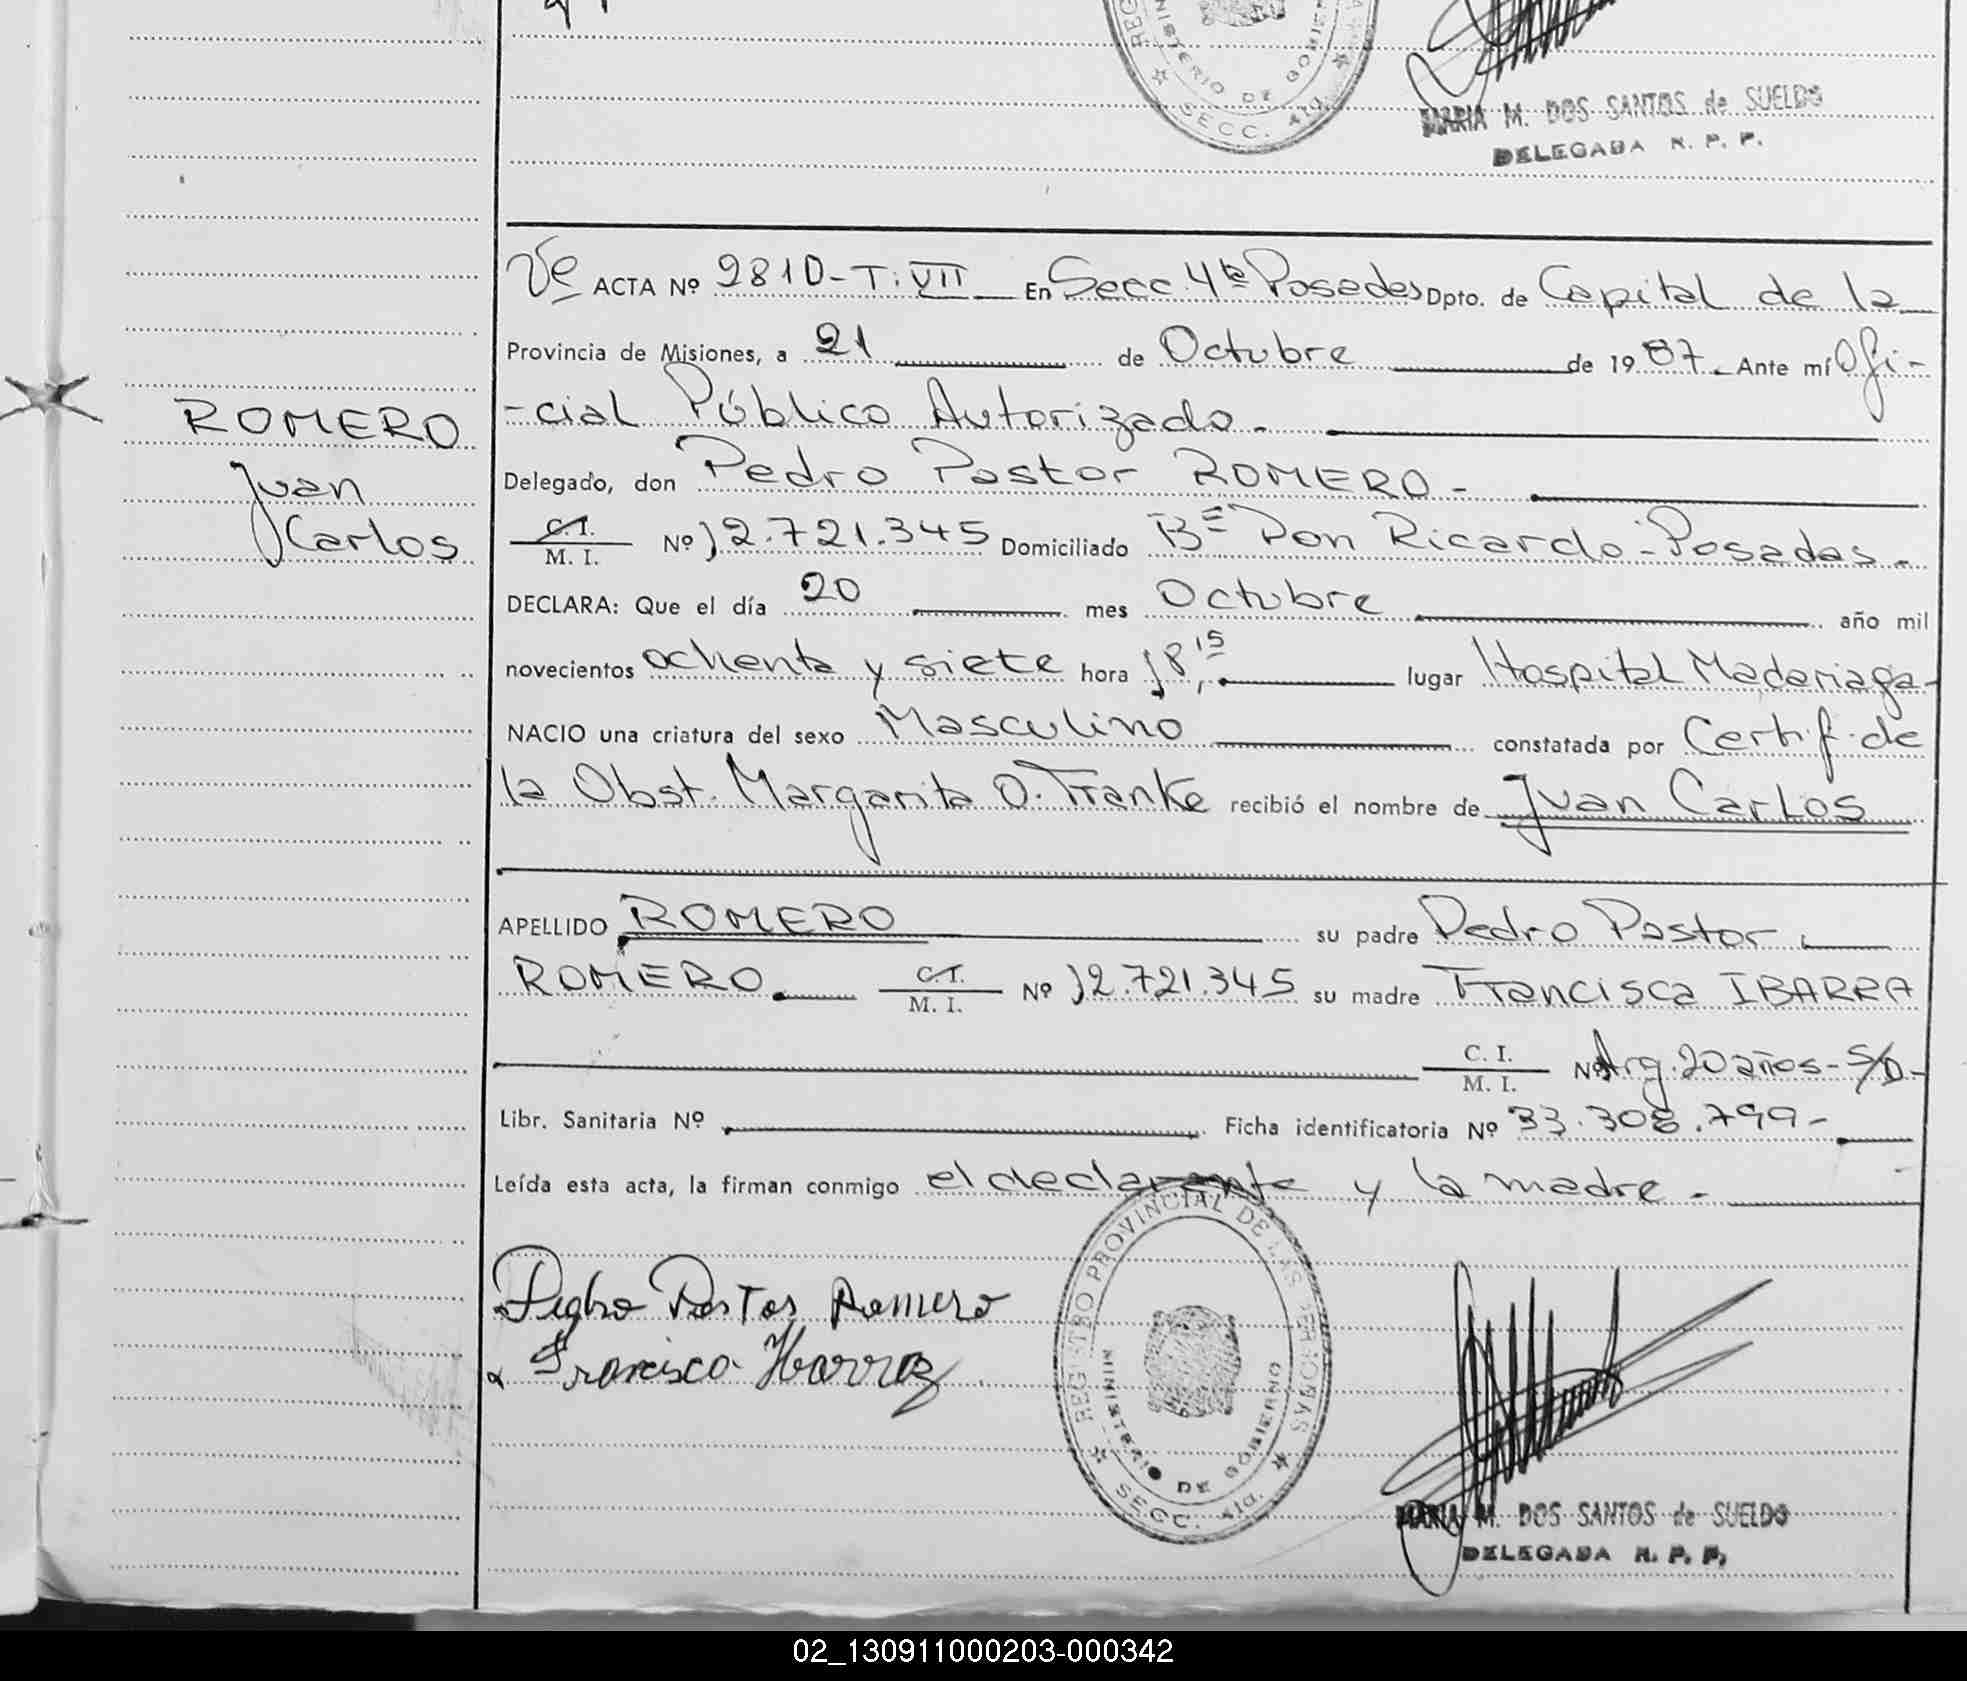 REG
MINISTERIO DE GOBIER
SECC. 4ta.
MARIA M. DOS SANTOS de SUELDO
DELEGADA R. P. P.
ROMERO
Juan
Carlos
Vº ACTA Nº 2810-T:VII En Secc 4ta Posadas Dpto. de Capital de la
Provincia de Misiones, a 21 de Octubre de 1987. Ante mí Ofi-
-cial Público Autorizado.
Delegado, don Pedro Pastor ROMERO-
C.I. / M. I. Nº 12.721.345 Domiciliado Bº Don Ricardo-Posadas.
DECLARA: Que el día 20 mes Octubre año mil
novecientos ochenta y siete hora 18,15 lugar Hospital Madariaga-
NACIO una criatura del sexo Masculino constatada por Certif. de
la Obst. Margarita O. Franke recibió el nombre de Juan Carlos
APELLIDO ROMERO su padre Pedro Pastor
ROMERO. C.I. / M. I. Nº 12.721.345 su madre Francisca IBARRA
C. I. / M. I. Nº Arg. 20 años-S/D-
Libr. Sanitaria Nº Ficha identificatoria Nº 33.308.799-
Leída esta acta, la firman conmigo el declarante y la madre.
Pedro Pastor Romero
Francisca Ibarra
REGISTRO PROVINCIAL DE LAS PERSONAS
MINISTERIO DE GOBIERNO
SECC. 4ta.
MARIA M. DOS SANTOS de SUELDO
DELEGADA R. P. P.
02_130911000203-000342